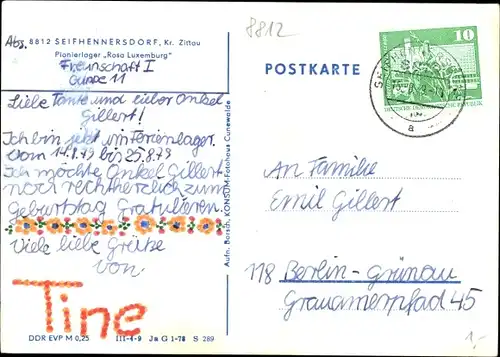 8812
Abs. 8812 SEIFHENNERSDORF, Kr. Zittau
Pionierlager „Rosa Luxemburg"
Freunschaft I
Gruppe 11
Liebe Tante und lieber Onkel
Gillert!
Ich bin jetzt im Ferienlager.
Vom 14.8.79 bis 25.8.79
Ich möchte Onkel Gillert
noch recht herzlich zum
Geburtstag Gratulieren.
Viele liebe Grüße
von
Tine
DDR EVP M 0,25 III-4-9 Ja G 1-78 S 289
Aufn. Borsch, KONSUM-Fotohaus Cunewalde
POSTKARTE
10
DEUTSCHE DEMOKRATISCHE REPUBLIK
a
An Familie
Emil Gillert
118 Berlin-Grünau
Grauammerpfad 45
1,-